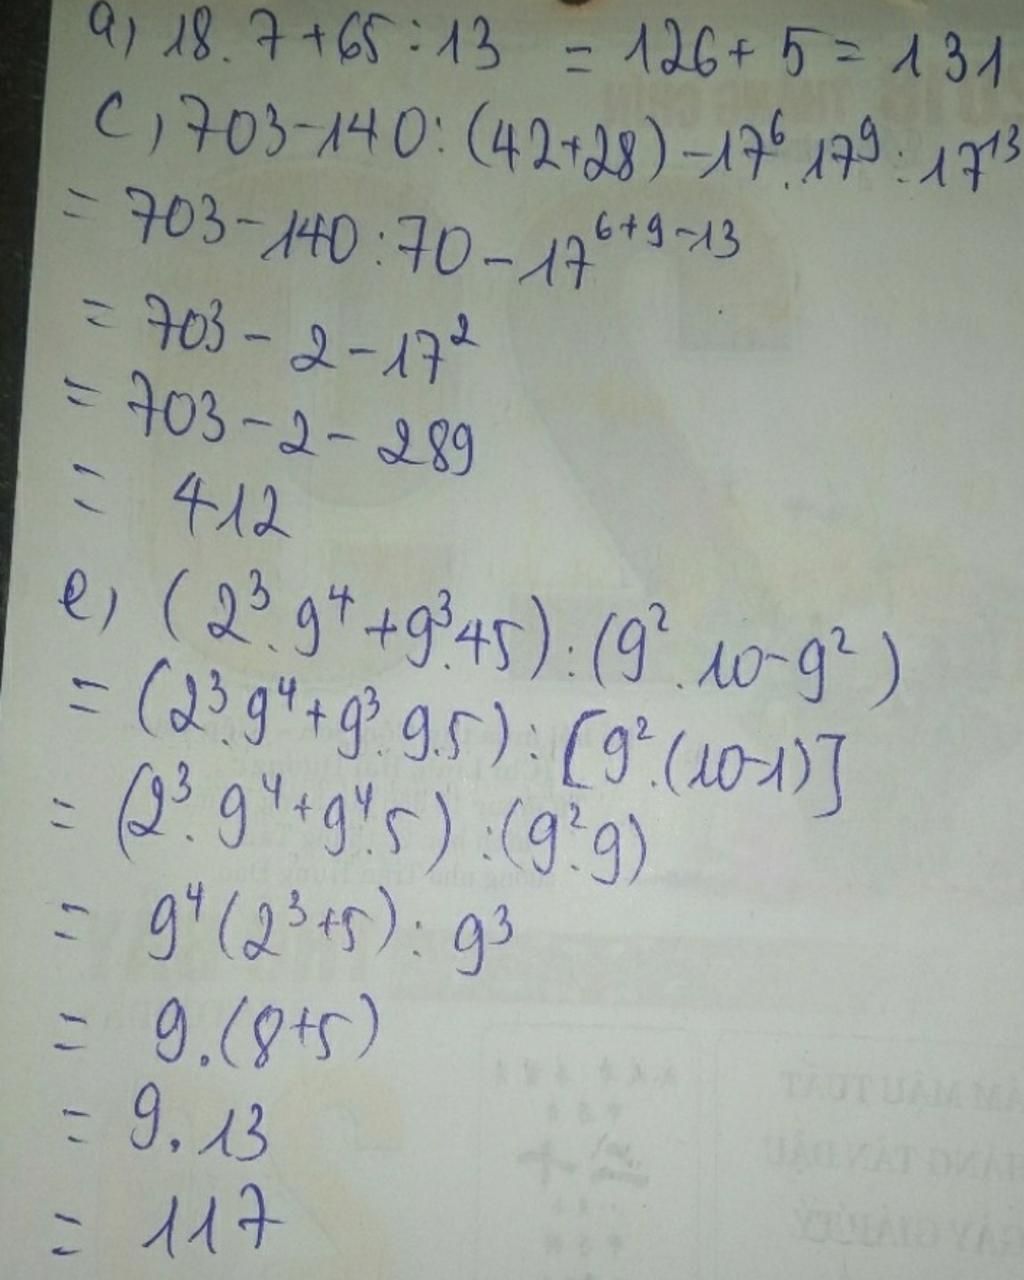 a, 18.7+65:13 = 126+5=131
c, 703-140:(42+28)-17⁶.17⁹:17¹³
= 703-140:70-17⁶⁺⁹⁻¹³
= 703-2-17²
= 703-2-289
= 412
e, (2³.9⁴+9³.45):(9².10-9²)
= (2³.9⁴+9³.9.5):[9².(10-1)]
= (2³.9⁴+9⁴.5):(9².9)
= 9⁴(2³+5):9³
= 9.(8+5)
= 9.13
= 117